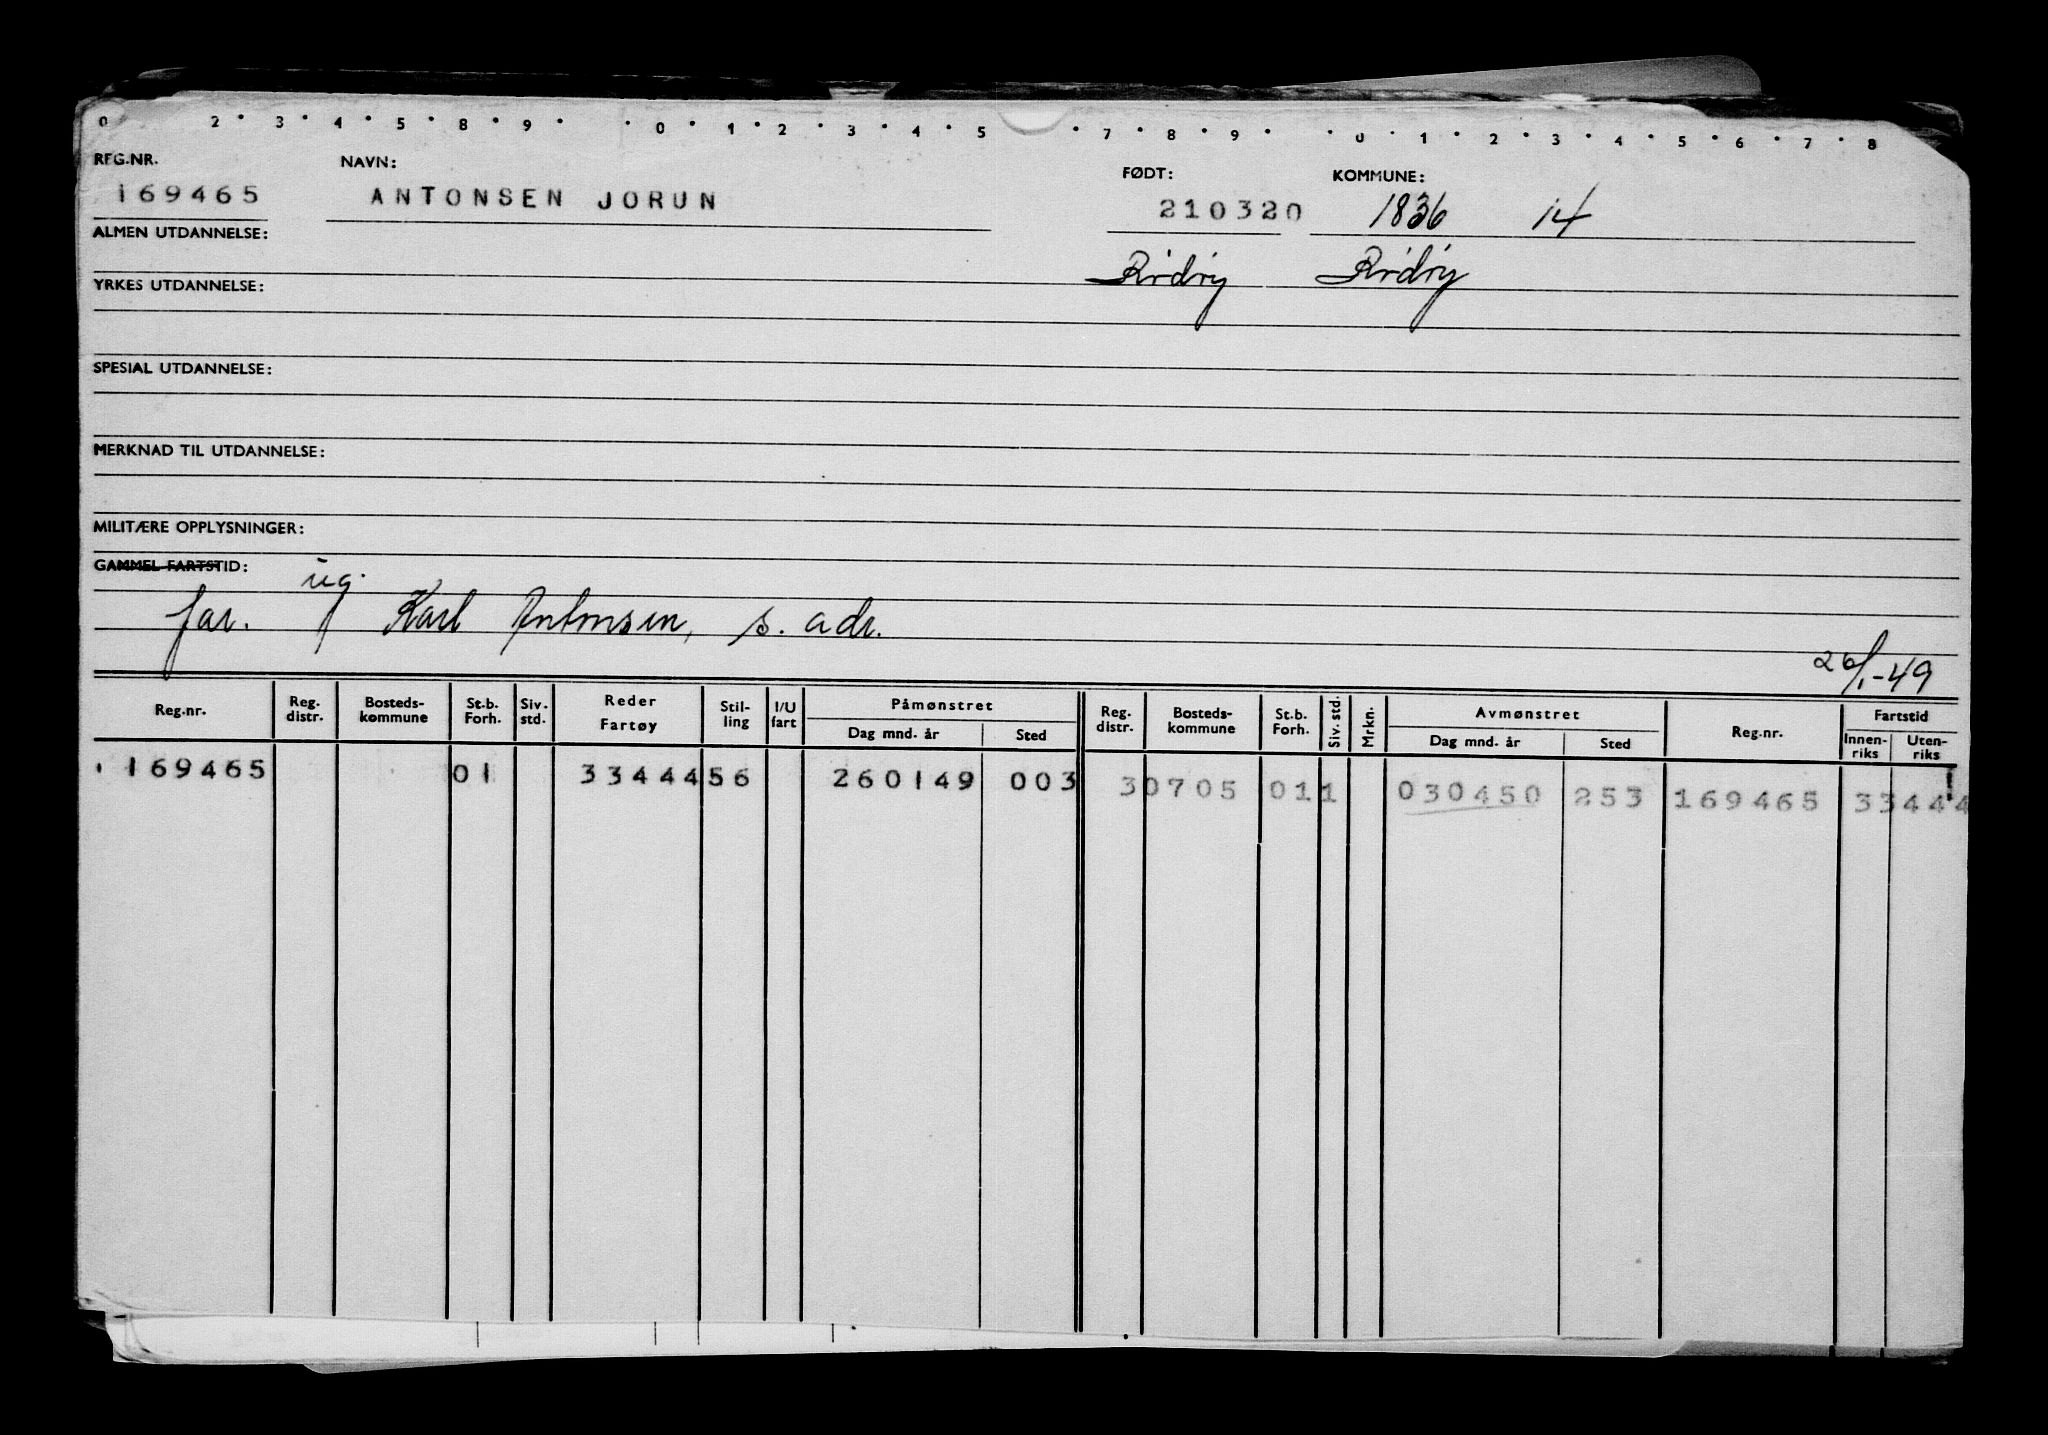 0 2 • 3 • 4 • 5 • 8 • 9 • • 0 • 1 • 2 • 3 • 4 • 5 • 7 • 8 • 9 • • 0 • 1 • 2 • 3 • 4 • 5 • 6 • 7 • 8
REG.NR. NAVN: FØDT: KOMMUNE:
169465 ANTONSEN JORUN 210320 1836 14
ALMEN UTDANNELSE:
Rödöy Rödöy
YRKES UTDANNELSE:
SPESIAL UTDANNELSE:
MERKNAD TIL UTDANNELSE:
MILITÆRE OPPLYSNINGER:
GAMMEL FARTSTID:
ug.
far. Karl Antonsen, s. adr.
26/1-49
Reg.nr. Reg. distr. Bosteds-kommune St.b. Forh. Siv. std. Reder Fartøy Stil-ling I/U fart Påmønstret Dag mnd. år Sted Reg. distr. Bosteds-kommune St.b. Forh. Siv. std. Mrkn. Avmønstret Dag mnd. år Sted Reg.nr. Fartstid Innen-riks Uten-riks
169465 01 3344456 260149 003 30705 011 030450 253 169465 33444